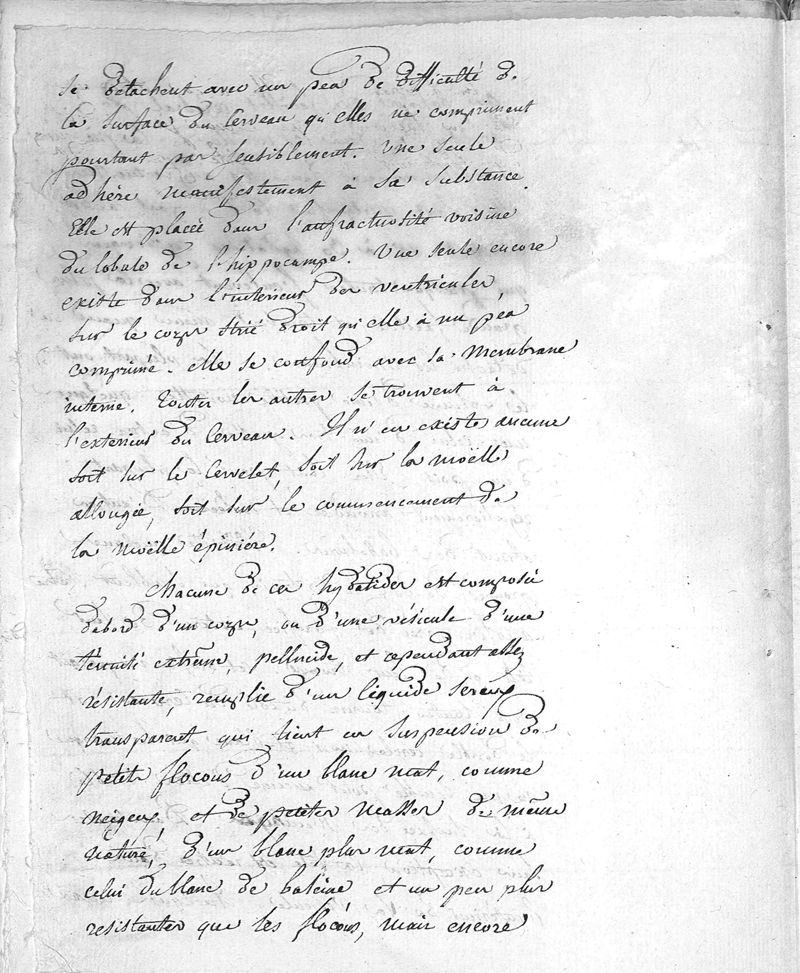 se detachent avec un peu de difficulté de
la surface du Cerveau qu'elles ne compriment
pourtant pas sensiblement. Une seule
adhère manifestement à sa substance.
Elle est placée dans l'anfractuosité voisine
du lobule de l'hippocampe. Une seule encore
existe dans l'interieur des ventricules
sur le corps strié droit qu'elle à un peu
comprimé. elle se confond avec sa Membrane
interne. Toutes les autres se trouvent à
l'exterieur du Cerveau. Il n'en existe aucune
soit sur le Cervelet, soit sur la moëlle
allongée, soit sur le commencement de
la moëlle épiniére.
Chacune de ces hydatides est composée
d'abord d'un corps, ou d'une vésicule d'une
ténuité extrême, pellucide, et cependant assez
résistante, remplie d'un liquide sereux
transparent qui tient en suspension de
petits flocons d'un blanc mat, comme
neigeux et de petites masses de même
nature, d'un blanc plus mat, comme
celui du blanc de baleine et un peu plus
resistantes que les flocons, mais encore